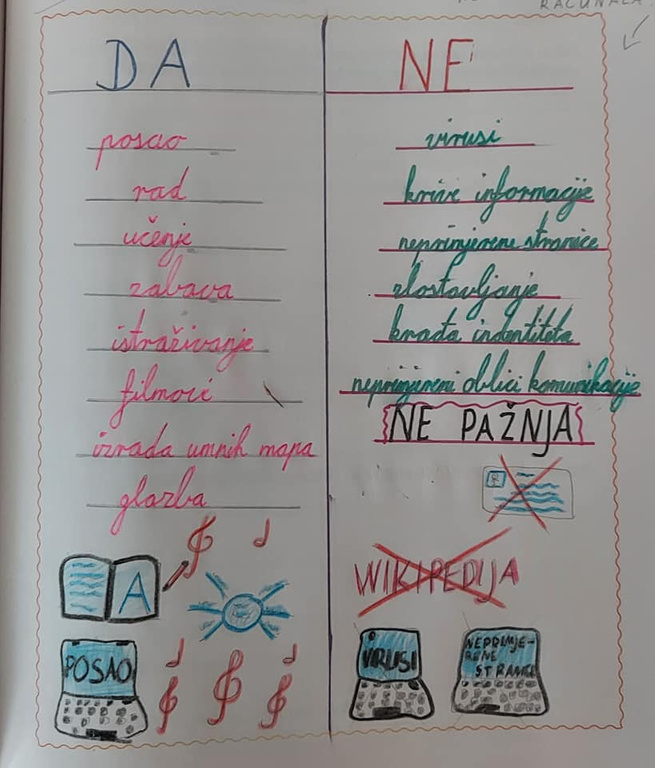 RAČUNALA
DA
posao
rad
učenje
zabava
istraživanje
filmovi
izrada umnih mapa
glazba
A
POSAO
NE
virusi
krive informacije
neprimjerene stranice
zlostavljanje
krađa indentiteta
neprimjereni oblici komunikacije
NE PAŽNJA
WIKIPEDIJA
VIRUSI
NEPRIMJE-
RENE
STRANICE